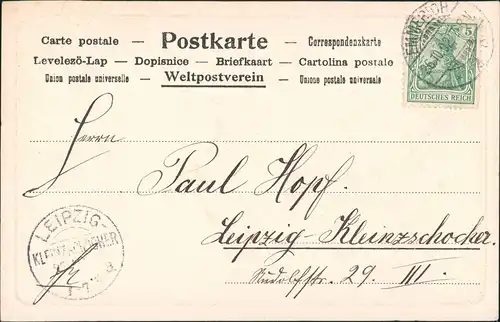 Carte postale — Postkarte — Correspondenzkarte
Levelező-Lap — Dopisnice — Briefkaart — Cartolina postale
Union postale universelle — Weltpostverein — Unione postale universale
5
DEUTSCHES REICH
Herrn
Paul Hopf.
Leipzig-Kleinzschocher.
Rudolfstr. 29 III.
LEIPZIG-